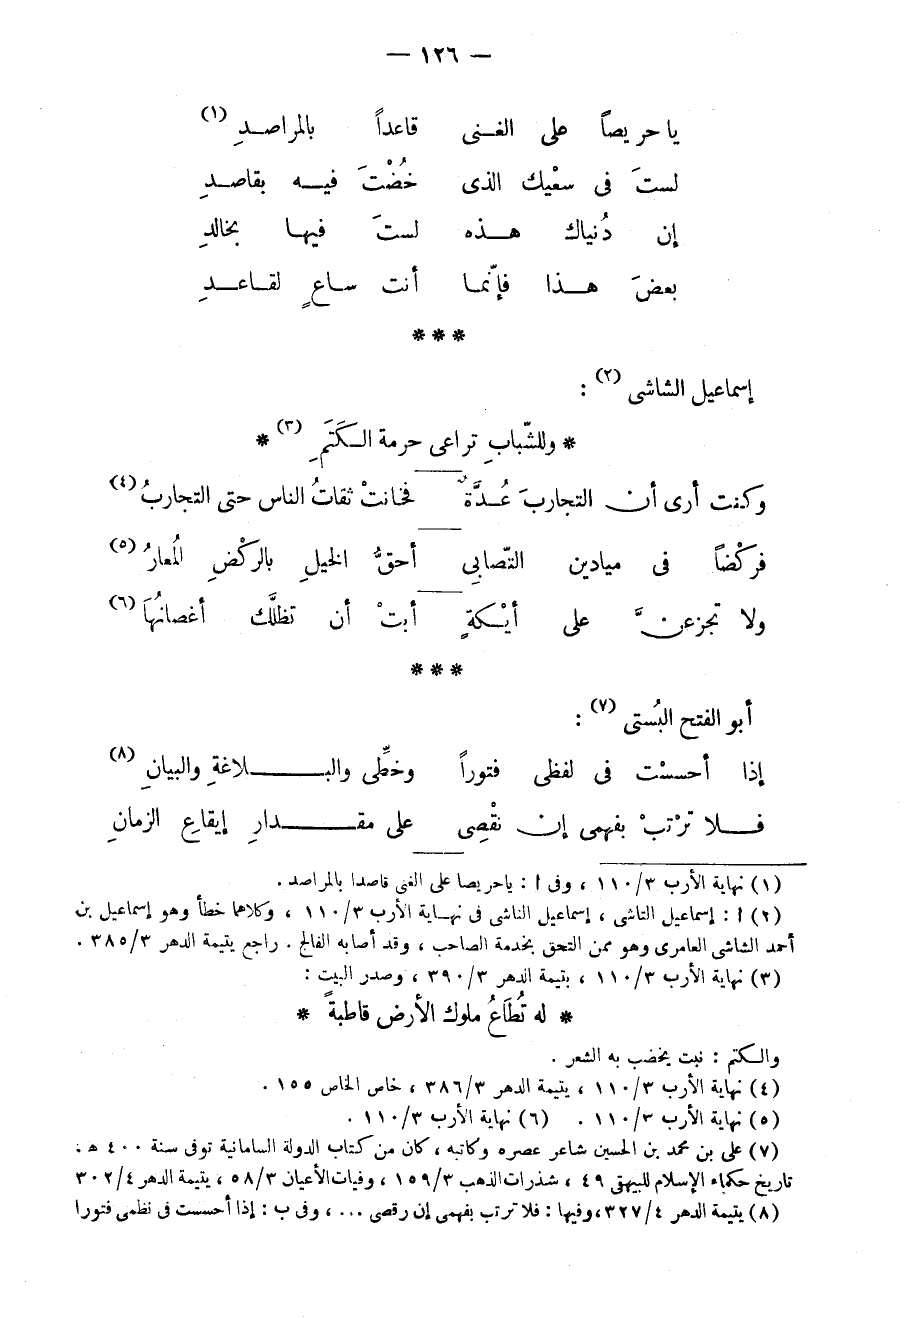 — ١٢٦ —
يا حريصاً على الغنى قاعداً بالمراصدِ (١)
لستَ فى سعْيك الذى خُضْتَ فيه بقاصدِ
إن دُنياك هذه لستَ فيها بخالدِ
بعضَ هذا فإنّما أنت ساعٍ لقاعدِ
***
إسماعيل الشاشى (٢) :
* وللشّبابِ تراعى حرمة الكَتَمِ (٣) *
وكنت أرى أن التجاربَ عُدَّة فخانتْ ثقاتُ الناس حتى التجاربُ (٤)
فركْضاً فى ميادين التّصابى أحقُّ الخيلِ بالركْضِ المُعارُ (٥)
ولا تجزعنَّ على أيْكةٍ أبتْ أن تظلَّك أغصانُهَا (٦)
***
أبو الفتح البُستى (٧) :
إذا أحسسْت فى لفظى فتوراً وخطِّى والبلاغةِ والبيانِ (٨)
فلا ترْتبْ بفهمى إن نقْصِى على مقدارِ إيقاعِ الزمانِ
(١) نهاية الأرب ١١٠/٣ ، وفى أ : ياحريصا على الغنى قاصدا بالمراصد .
(٢) أ : إسماعيل التاشى ، إسماعيل الناشى فى نهاية الأرب ١١٠/٣ ، وكلاهما خطأ وهو إسماعيل بن
أحمد الشاشى العامرى وهو ممن التحق بخدمة الصاحب ، وقد أصابه الفالج . راجع يتيمة الدهر ٣٨٥/٣ .
(٣) نهاية الأرب ١١٠/٣ ، يتيمة الدهر ٣٩٠/٣ ، وصدر البيت :
* له تُطَاعُ ملوك الأرض قاطبةً *
والكتم : نبت يخضب به الشعر .
(٤) نهاية الأرب ١١٠/٣ ، يتيمة الدهر ٣٨٦/٣ ، خاص الخاص ١٥٥ .
(٥) نهاية الأرب ١١٠/٣ . (٦) نهاية الأرب ١١٠/٣ .
(٧) على بن محمد بن الحسين شاعر عصره وكاتبه ، كان من كتاب الدولة السامانية توفى سنة ٤٠٠ هـ .
تاريخ حكماء الإسلام للبيهقى ٤٩ ، شذرات الذهب ١٥٩/٣ ، وفيات الأعيان ٥٨/٣ ، يتيمة الدهر ٣٠٢/٤
(٨) يتيمة الدهر ٣٢٧/٤ ، وفيها : فلا ترتب بفهمى إن رقصى ... ، وفى ب : إذا أحسست فى نظمى فتورا